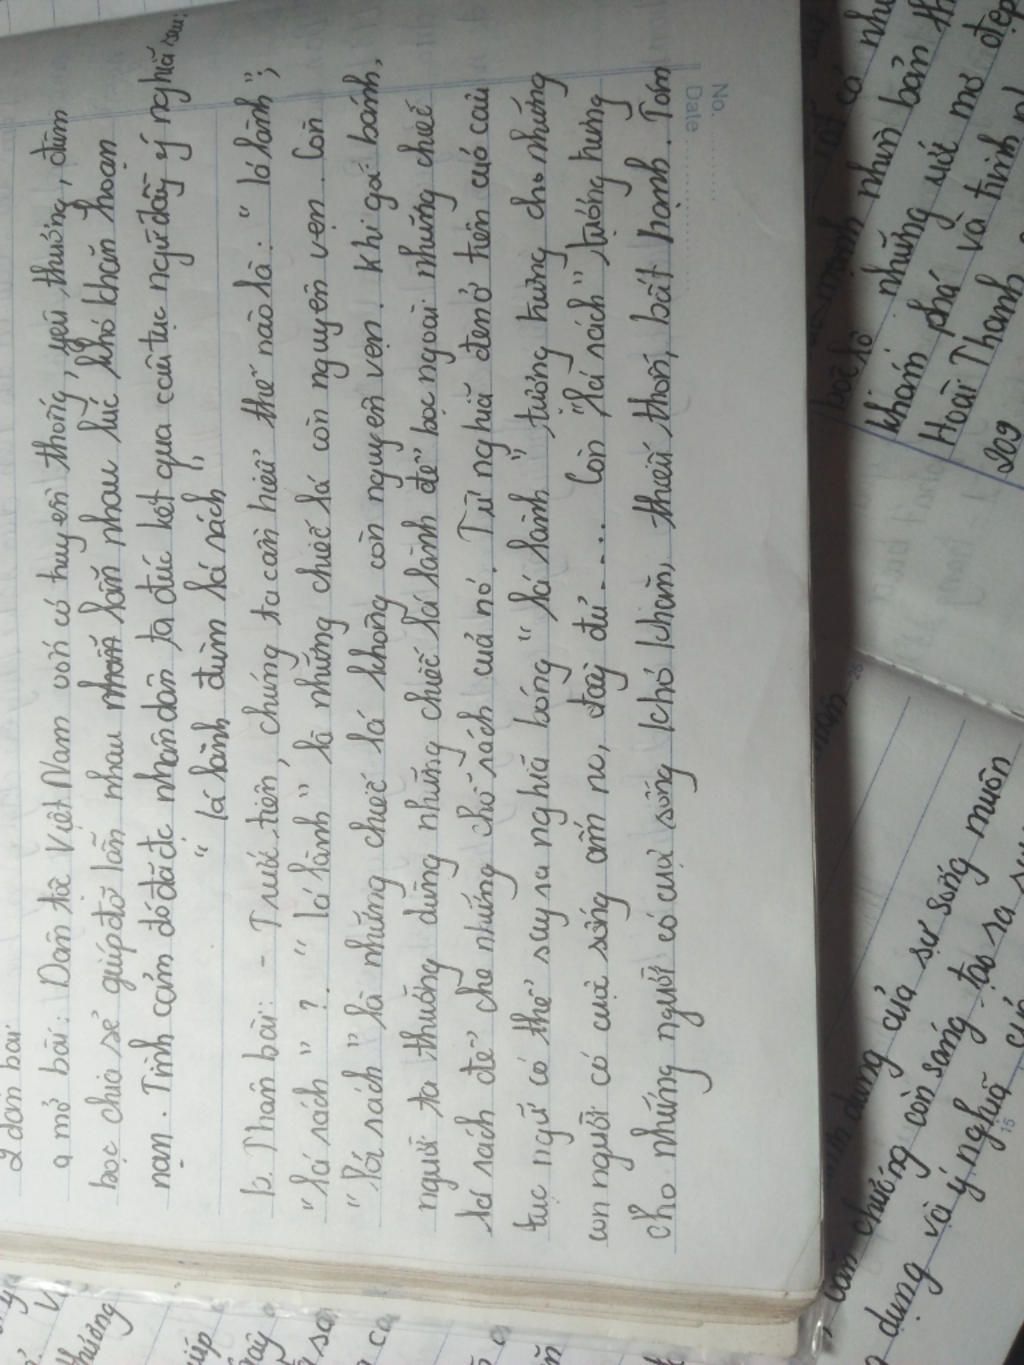 2 dàn bài
a mở bài: Dân tộc Việt Nam vốn có truyền thống, yêu thương, đùm
bọc chia sẻ giúp đỡ lẫn nhau lẫn nhau lúc khó khăn hoạn
nạn. Tình cảm đó đã đc nhân dân ta đúc kết qua câu tục ngữ đầy ý nghĩa sau:
" lá lành đùm lá rách "
b. Thân bài: - Trước tiên, chúng ta cần hiểu thế nào là: " lá lành ";
" lá rách " ? " lá lành " là những chiếc lá còn nguyên vẹn. Còn
" lá rách " là những chiếc lá không còn nguyên vẹn. Khi gói bánh,
người ta thường dùng những chiếc lá lành để bọc ngoài những chiếc
lá rách để che những chỗ rách của nó. Từ nghĩa đen ở trên của câu
tục ngữ có thể suy ra nghĩa bóng " lá lành " tượng trưng cho những
con người có cuộc sống ấm no, đầy đủ.... Còn "lá rách" tượng trưng
cho những người có cuộc sống khó khăn, thiếu thốn, bất hạnh. Tóm
No.
Date
khám phá
những ước mơ đẹp
Hoài Thanh và
209
của sự sống muôn
chương còn sáng tạo ra sự
dụng và ý nghĩa